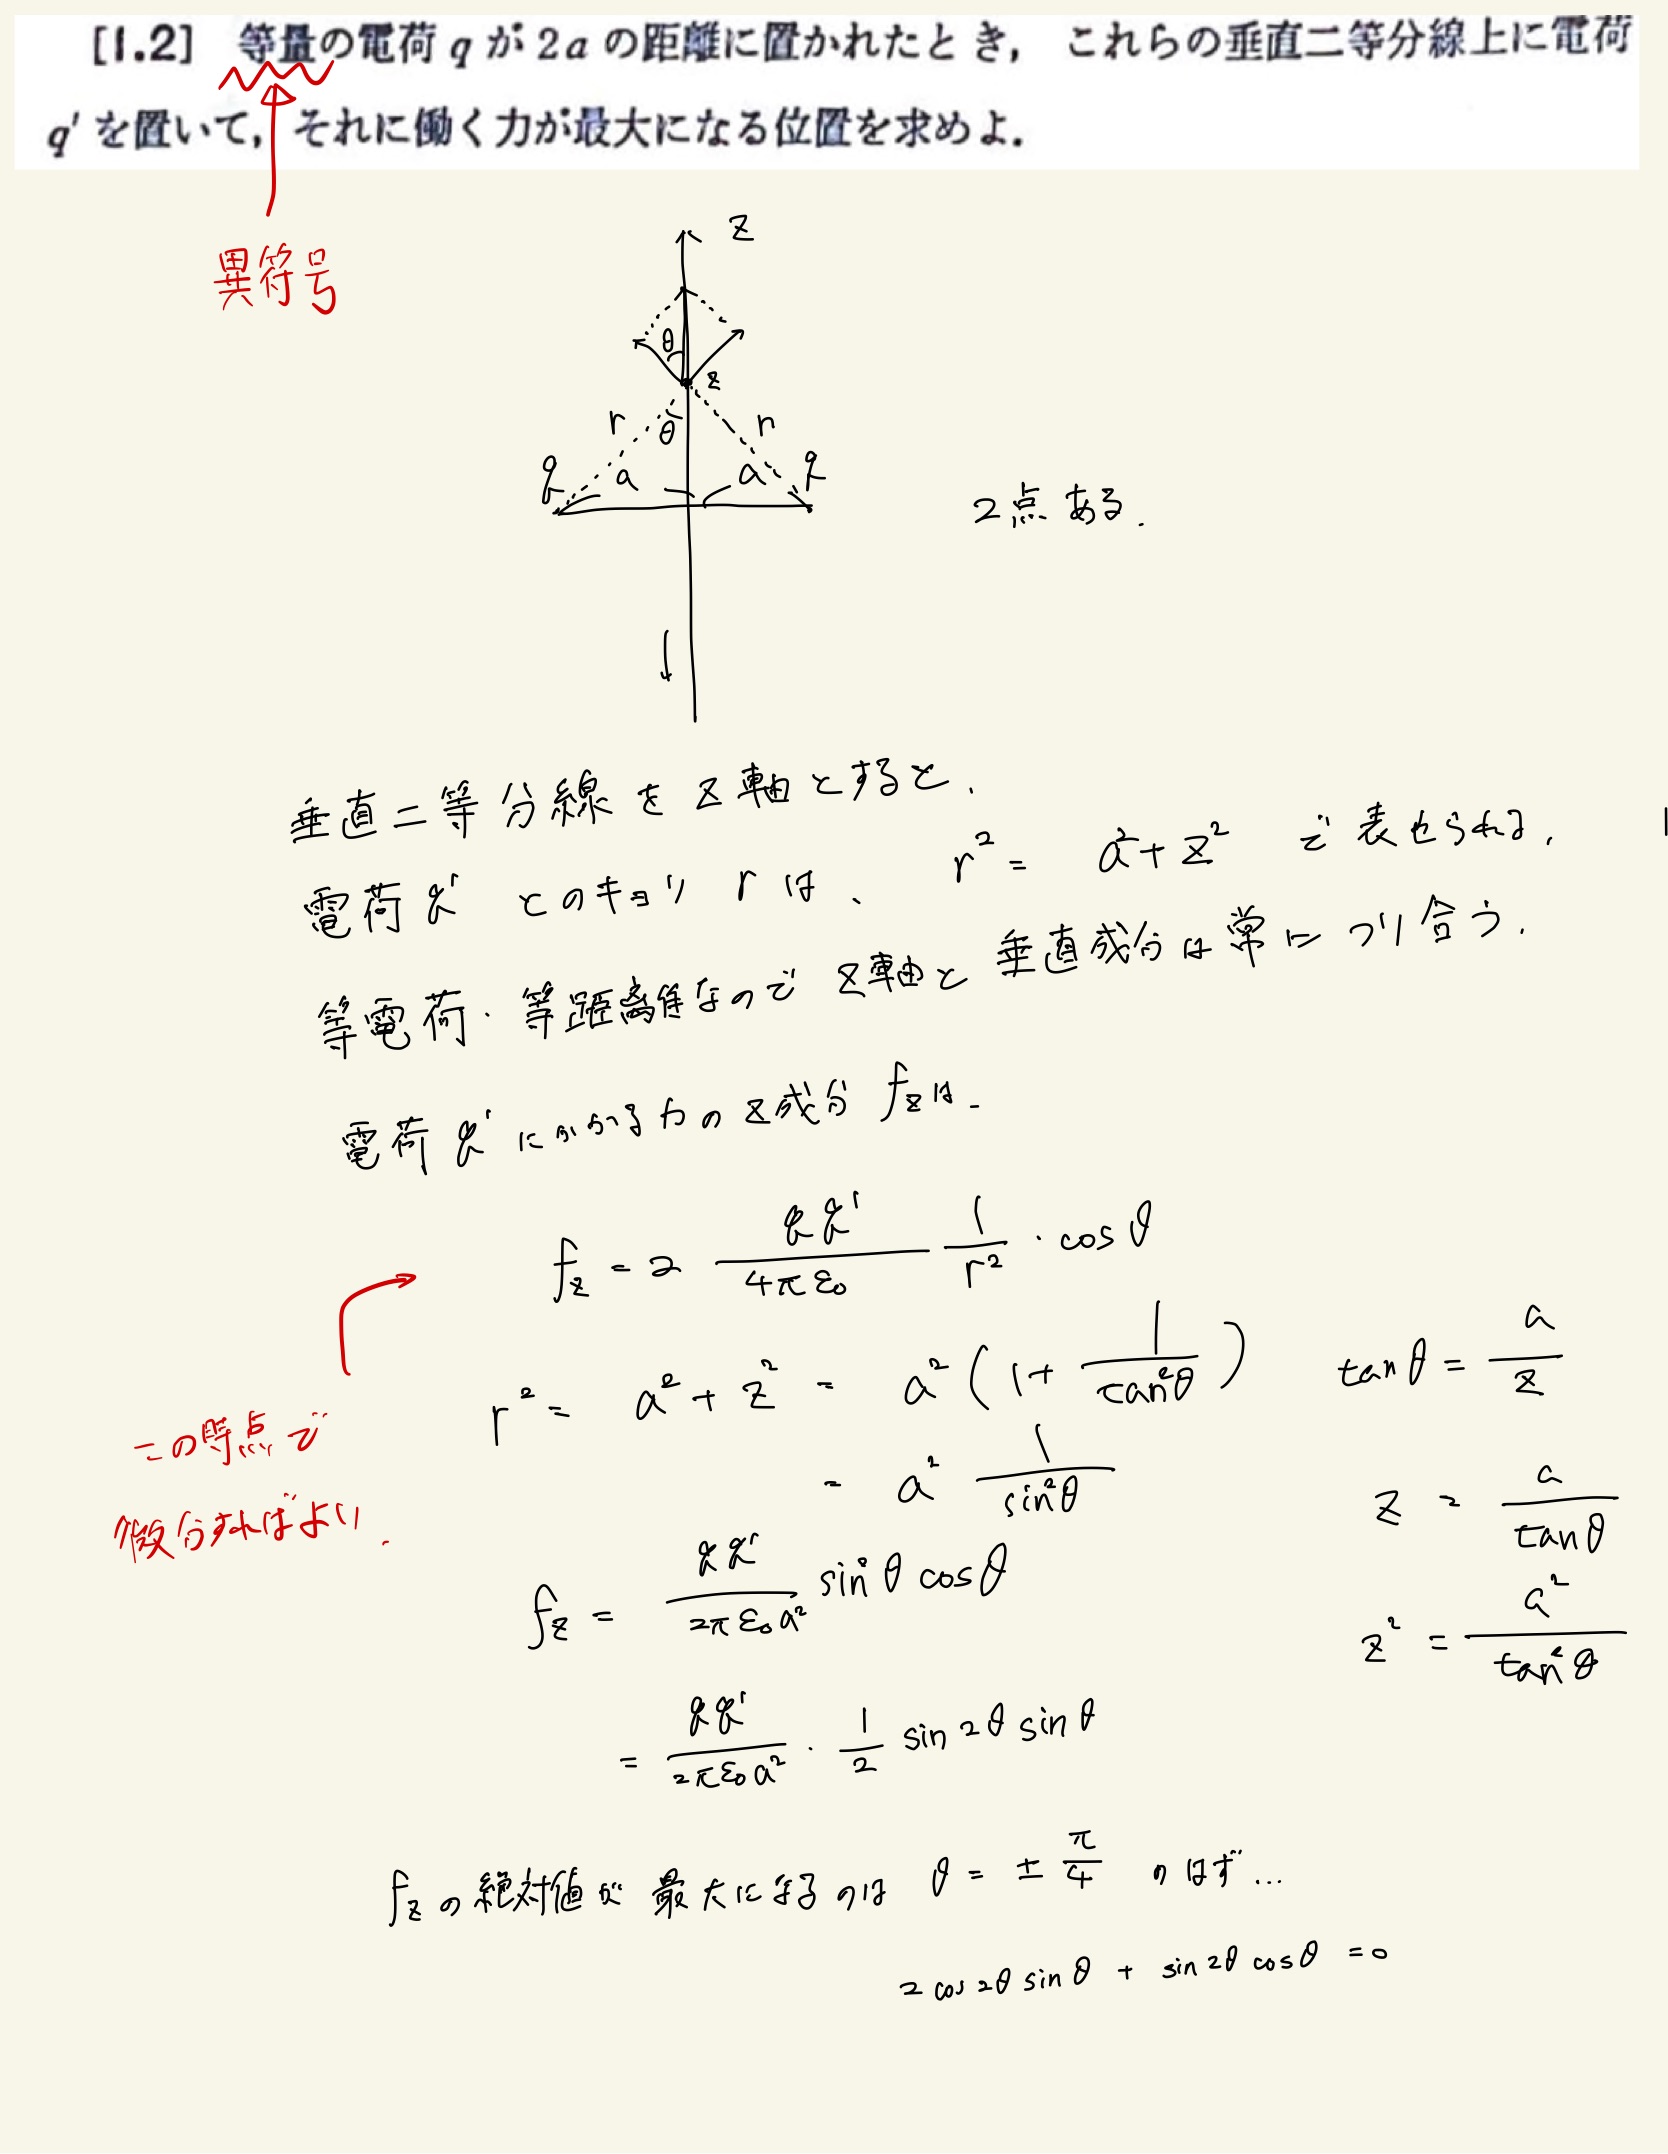 [1.2] 等量の電荷 q が 2a の距離に置かれたとき, これらの垂直二等分線上に電荷
q' を置いて, それに働く力が最大になる位置を求めよ.
異符号
z
θ
z
r θ r
q a a q
2点ある.
垂直二等分線を z軸とすると、
電荷 q' とのキョリ r は、 r² = a² + z² で表せられる.
等電荷・等距離なので z軸と垂直成分は常につり合う.
電荷 q' にかかる力の z成分 f_z は、
f_z = 2 \frac{qq'}{4πε₀} \frac{1}{r²} · cosθ
r² = a² + z² = a² (1 + \frac{1}{tan²θ}) tanθ = \frac{a}{z}
この時点で
微分すればよい.
= a² \frac{1}{sin²θ} z = \frac{a}{tanθ}
f_z = \frac{qq'}{2πε₀a²} sin²θ cosθ z² = \frac{a²}{tan²θ}
= \frac{qq'}{2πε₀a²} · \frac{1}{2} sin2θ sinθ
f_z の絶対値が最大になるのは θ = ± \frac{π}{4} のはず...
2cos2θ sinθ + sin2θ cosθ = 0